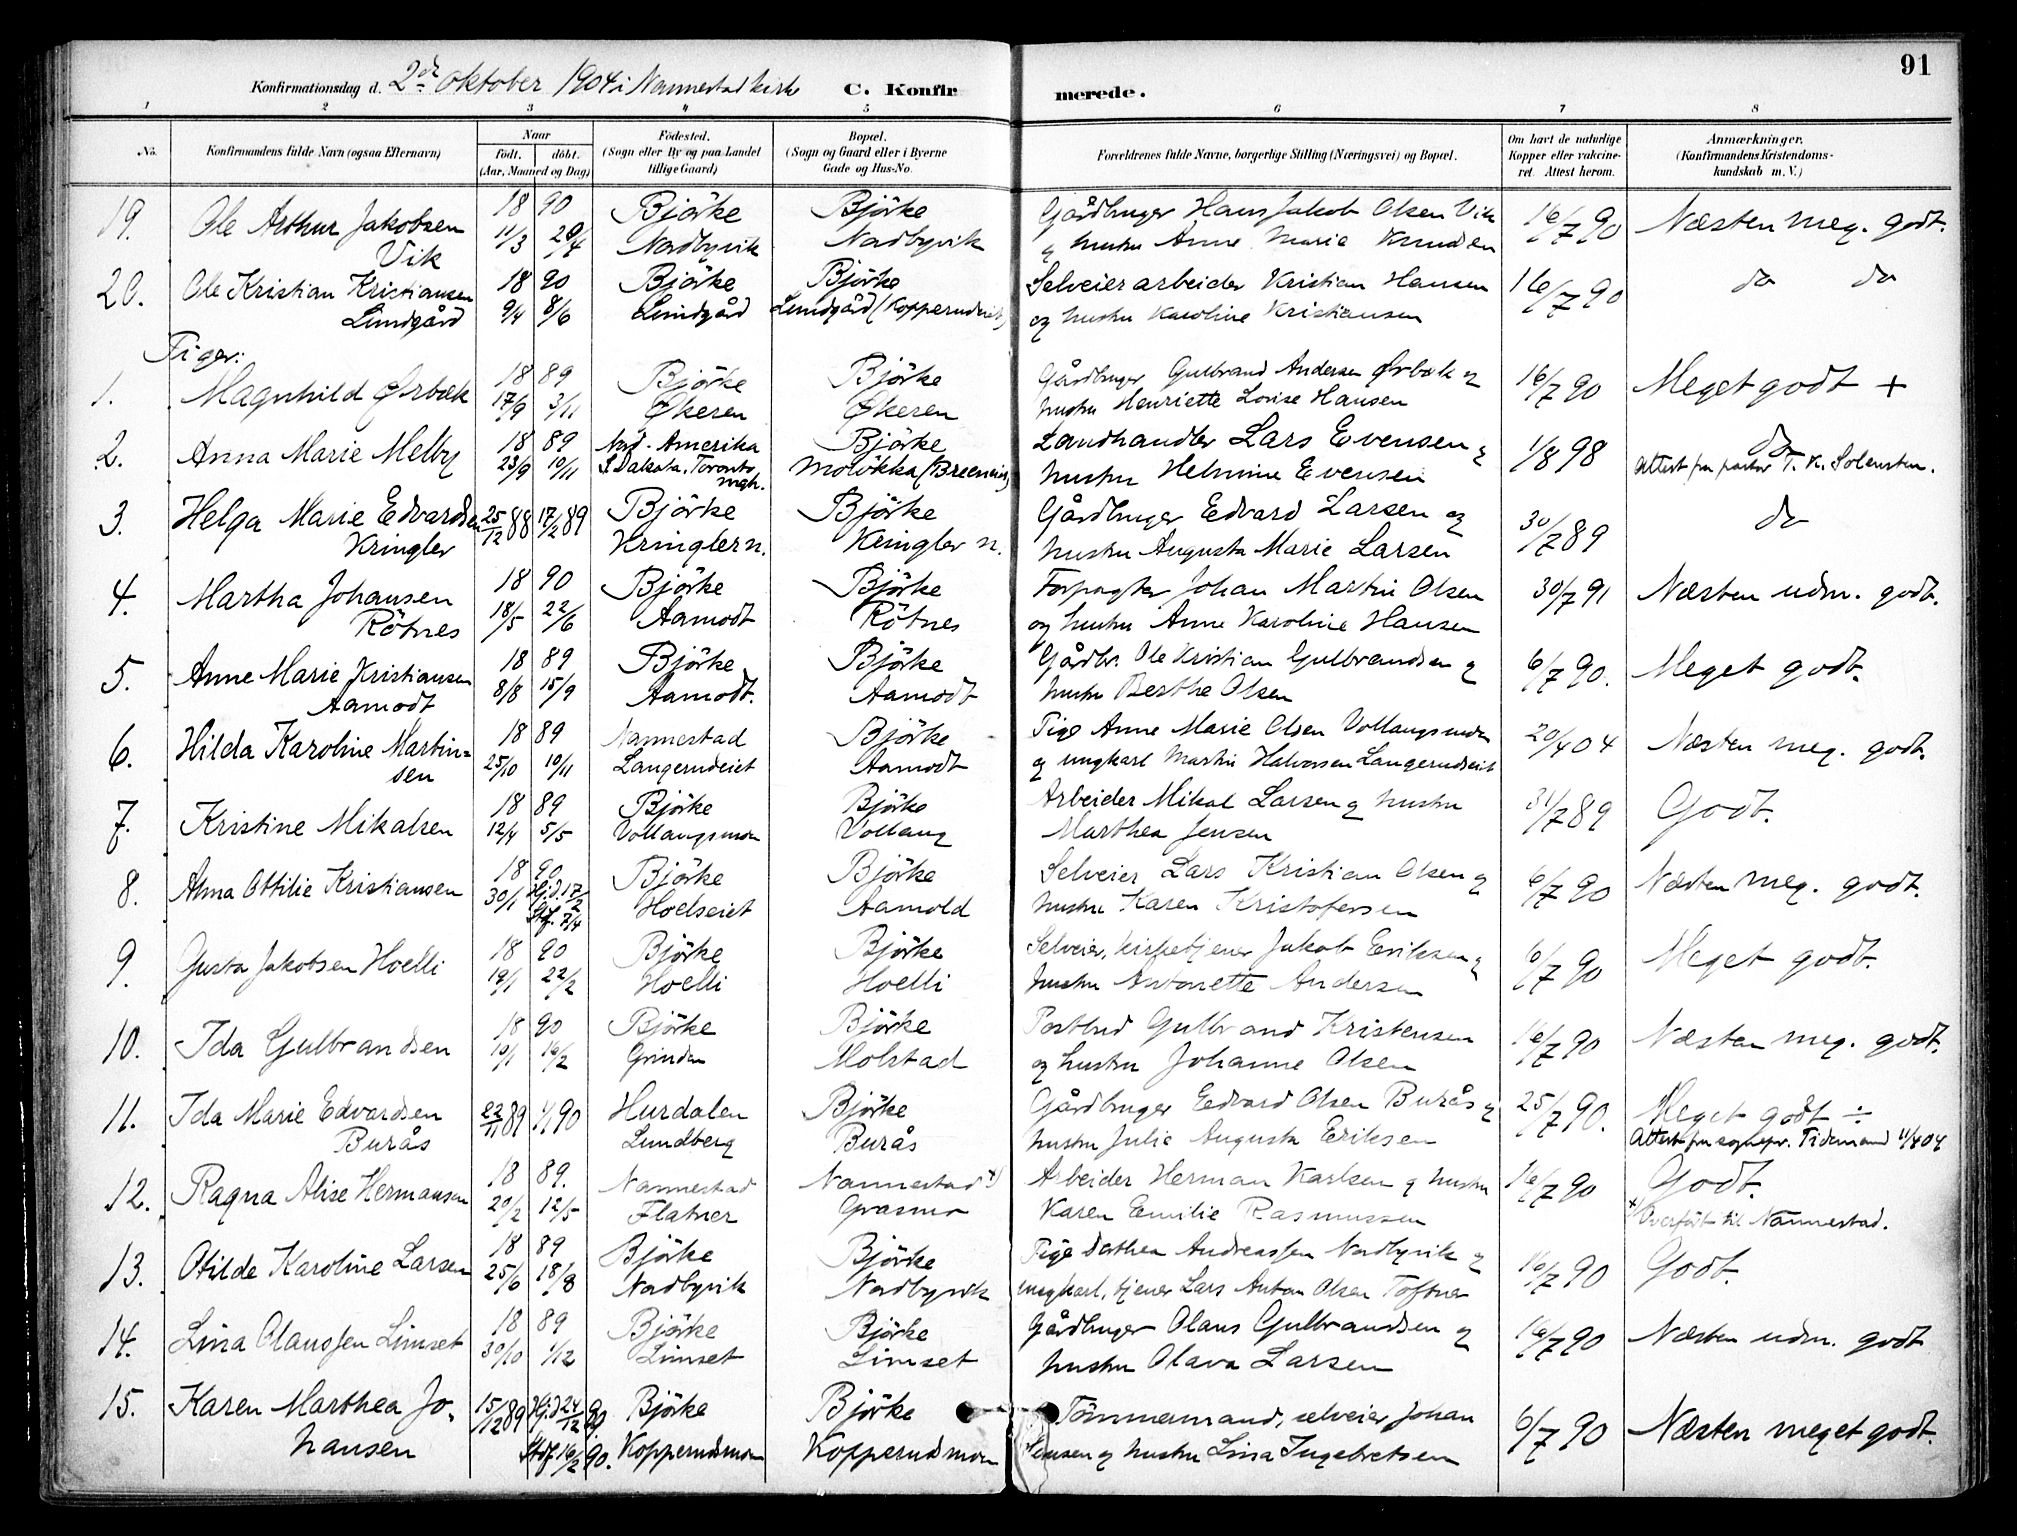 91
Konfirmationsdag d. 2den Oktober 1904 i Nannestad kirke C. Konfirmerede.
1 2 3 4 5 6 7 8
No. Konfirmandens fulde Navn (ogsaa Efternavn) Naar født. døbt. (Aar, Maaned og Dag) Fødested. (Sogn eller By og paa Landet tillige Gaard) Bopæl. (Sogn og Gaard eller i Byerne Gade og Hus-No. Forældrenes fulde Navne, borgerlige Stilling (Næringsvei) og Bopæl. Om havt de naturlige Kopper eller vakcineret. Attest herom. Anmærkninger. (Konfirmandens Kristendomskundskab m. V.)
19. Ole Arthur Jakobsen 18 90 Björke Björke Gårdbruger Hans Jakob Olsen Vik 16/7 90 Næsten meg. godt.
Vik 11/3 20/4 Nordbyvik Nordbyvik og hustru Anne Marie Knudsen
20. Ole Kristian Kristiansen 18 90 Björke Björke Selveier arbeider Kristian Hansen 16/7 90 do do
Lundgård 9/4 8/6 Lundgård Lundgård (Kopperudeiet) og hustru Karoline Kristiansen
Piger:
1. Magnhild Ørbæk 18 89 Björke Björke Gårdbruger Gulbrand Andersen Ørbæk og 16/7 90 Meget godt +
17/9 3/11 Økeren Økeren hustru Henriette Lovise Hansen
2. Anna Marie Melby 18 89 Nord-Amerika Björke Landhandler Lars Evensen og 1/8 98 do
23/9 10/11 S. Dakota, Toronto mgh. Molökka (Breeneiet) hustru Helmine Evensen Attest fra pastor T. K. Solensten.
3. Helga Marie Edvardsen 25/12 88 17/2 89 Björke Björke Gårdbruger Edvard Larsen og 30/7 89 do
Kringler Kringler n. Kringler n. hustru Augusta Marie Larsen
4. Martha Johansen 18 90 Björke Björke Forpagter Johan Martin Olsen 30/7 91 Næsten udm. godt.
Rötnes 18/5 22/6 Aamodt Rötnes og hustru Anne Karoline Hansen
5. Anne Marie Kristiansen 18 89 Björke Björke Gårdbr. Ole Kristian Gulbrandsen og 6/7 90. Meget godt.
Aamodt 8/8 15/9 Aamodt. Aamodt hustru Berthe Olsen
6. Hilda Karoline Martin= 18 89 Nannestad Björke Pige Anne Marie Olsen Vollaugsmoen 20/4 04 Næsten meg. godt.
sen 25/10 10/11 Langerudeiet Aamodt og ungkarl Martin Halvorsen Langerudseiet
7. Kristine Mikalsen 18 89 Björke Björke Arbeider Mikal Larsen og hustru 31/7 89 Godt.
12/4 5/5 Vollaugsmoen Vollaug Marthea Jensen
8. Alma Ottilie Kristiansen 18 90 Björke Björke Selveier Lars Kristian Olsen og 6/7 90 Næsten meg. godt.
30/1 Hj.d. 17/2 Stf. 7/4 Hoelseiet Aamold hustru Karen Kristofersen
9. Gusta Jakobsen Hoelli 18 90 Björke Björke Selveier, kirketjener Jakob Eriksen og 6/7 90 Meget godt.
19/1 22/2 Hoelli Hoelli hustru Antonette Andersen
10. Ida Gulbrandsen 18 90 Björke Björke Postbud Gulbrand Kristensen 16/7 90 Næsten meg. godt.
10/1 16/2 Grinden Molstad og hustru Johanne Olsen
11. Ida Marie Edvardsen 22/11 89 1/1 90 Hurdalen Björke Gårdbruger Edvard Olsen Burås og 25/7 90. Meget godt ÷
Burås Lundberg Burås hustru Julie Augusta Eriksen Attest fra sognepr. Tidemand 11/4 04
12. Ragna Alise Hermansen 18 89. Nannestad Nannestad x) Arbeider Herman Karlsen og hustru 16/7 90 Godt.
20/2 12/5 Flatner Grasmo Karen Emilie Rasmussen x) Overført til Nannestad.
13. Otilde Karoline Larsen 18 89 Björke Björke Pige Dorthea Andreassen Nordbyvik og 16/7 90 Godt.
25/6 18/8 Nordbyvik Nordbyvik ungkarl, tjener Lars Anton Olsen Toftner
14. Lina Olaussen Limset 18 89 Björke Björke Gårdbruger Olaus Gulbrandsen og 16/7 90 Næsten udm. godt
30/10 1/12 Limset Limset hustru Olava Larsen
15. Karen Marthea Jo- 15/12 89 Hj.d. 24/2 90 Björke Björke Tömmermand, selveier Johan 6/7 90 Næsten meget godt.
hansen Stf. 16/2 90. Kopperudsmoen Kopperudsmoen Jensen og hustru Lina Ingebretsen